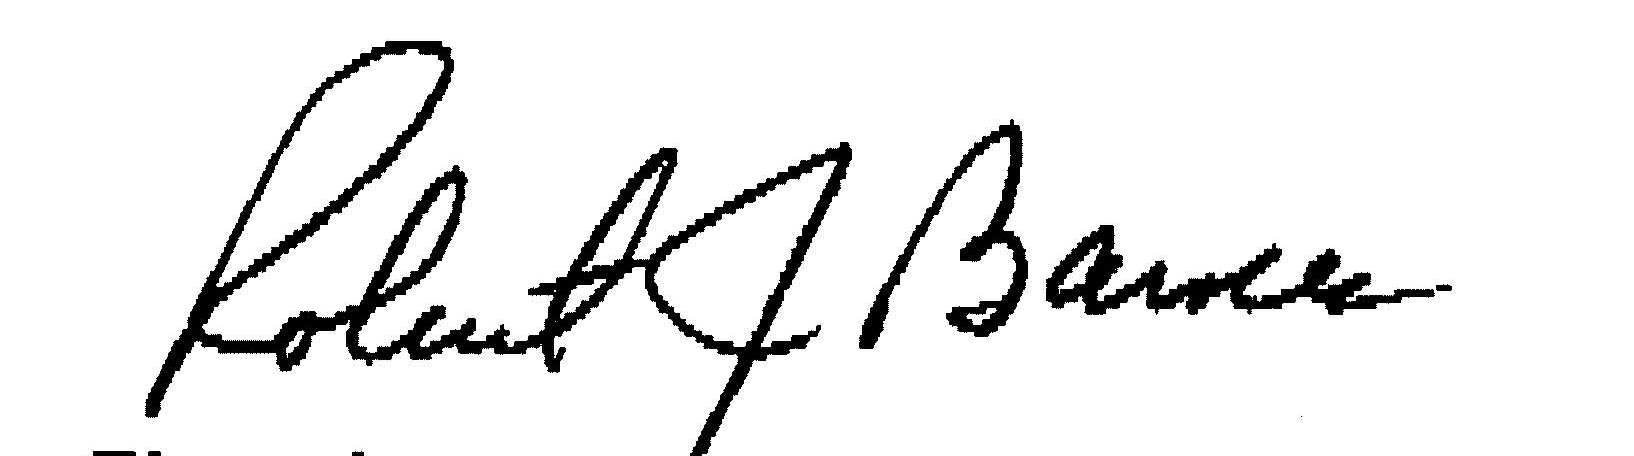 Robert J Barnes